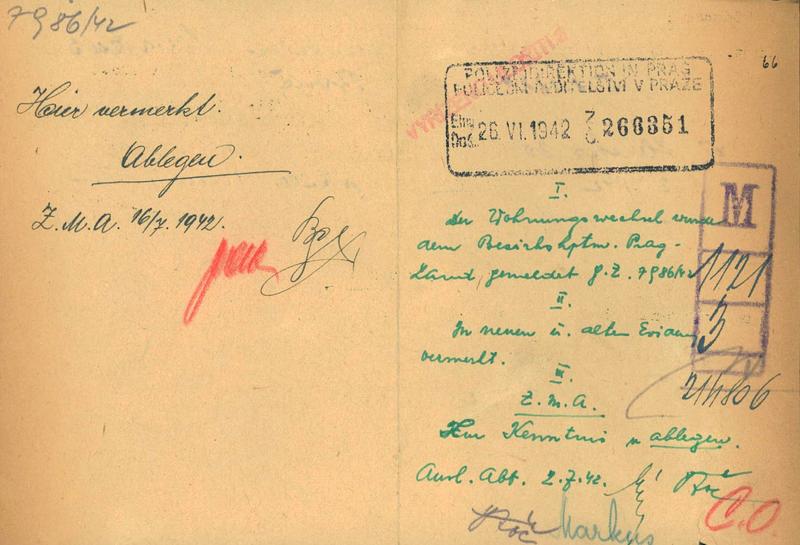 7986/42
Hier vermerkt.
Ablegen.
Z.M.A. 16/7. 1942.
66
POLIZEIDIREKTION IN PRAG
POLICEJNÍ ŘEDITELSTVÍ V PRAZE
26. VI. 1942 268351
I.
Der Wohnungswechsel wurde
dem Bezirkshptm. Prag-
Land, gemeldet g. Z. 7986/42
II.
In neuen u. alten
vermerkt.
III.
Z.M.A.
Zur Kenntnis u ablegen.
Ausl. Abt. 2.7.42.
M
1121
3
Markus
C.O.